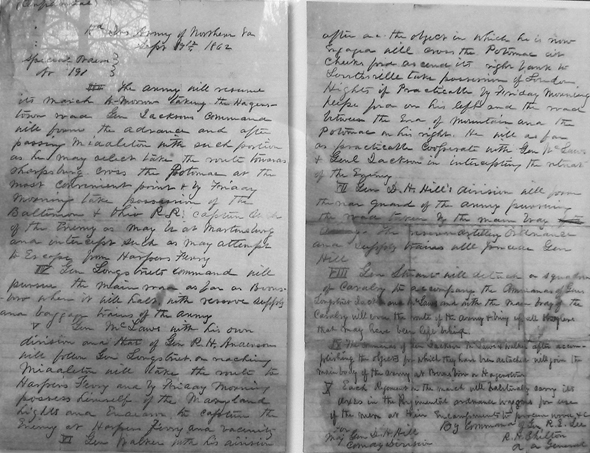 Hd Qrs Army of Northern Va
Sept 9th 1862
Special Orders
No 191
III The Army will resume
its march to-morrow taking the Hagers-
town road Gen Jacksons Command
will form the advance and after
passing Middleton with such portion
as he may select take the route towards
Sharpsburg cross the Potomac at the
most convenient point & by Friday
Morning take possession of the
Baltimore & Ohio R.R. capture such
of the Enemy as may be at Martinsburg
and intercept such as may attempt
to Escape from Harpers Ferry
IV Gen Longstreets command will
pursue the main road as far as Boons-
boro where it will halt, with reserve supply
and baggage trains of the army
V Gen McLaws with his own
division and that of Gen R.H. Anderson
will follow Gen Longstreet on reaching
Middleton will take the route to
Harpers Ferry and by Friday Morning
possess himself of the Maryland
hights and Endeavor to capture the
Enemy at Harpers Ferry and vicinity
VI Gen Walker with his division
after the object in which he is now
Engaged will cross the Potomac at
Cheeks ford ascend its right bank to
Lovettsville take possession of Loudon
Hights if Practicable by Friday Morning
Keyes ford on his left and the road
between the End of Mountain and the
Potomac on his right. He will as far
as practicable Cooperate with Gen McLaws
& Genl Jackson in intercepting the retreat
of the Enemy
VII Gen D.H. Hill's division will form
the rear guard of the army pursuing
the road taken by the main body
The reserve artillery Ordnance
and supply trains will precede Gen
Hill
VIII Gen Stuart will detach a squadron
of Cavalry to accompany the Commands of Gen
Longstreet Jackson and McLaws and with the main body of the
Cavalry will cover the route of the army & bring up all stragglers
that may have been left behind
IX The commands of Gen Jackson McLaws & Walker after accom-
plishing the objects for which they have been detached will join the
main body of the army at Boonsboro or Hagerstown
X Each Regiment on the march will habitually carry its
axes in the Regimental ordnance wagons for use
of the men at their Encampments to procure wood &c
By Command of Gen R.E. Lee
R.H. Chilton
A A General
For
Maj Gen D.H. Hill
Comdg Division